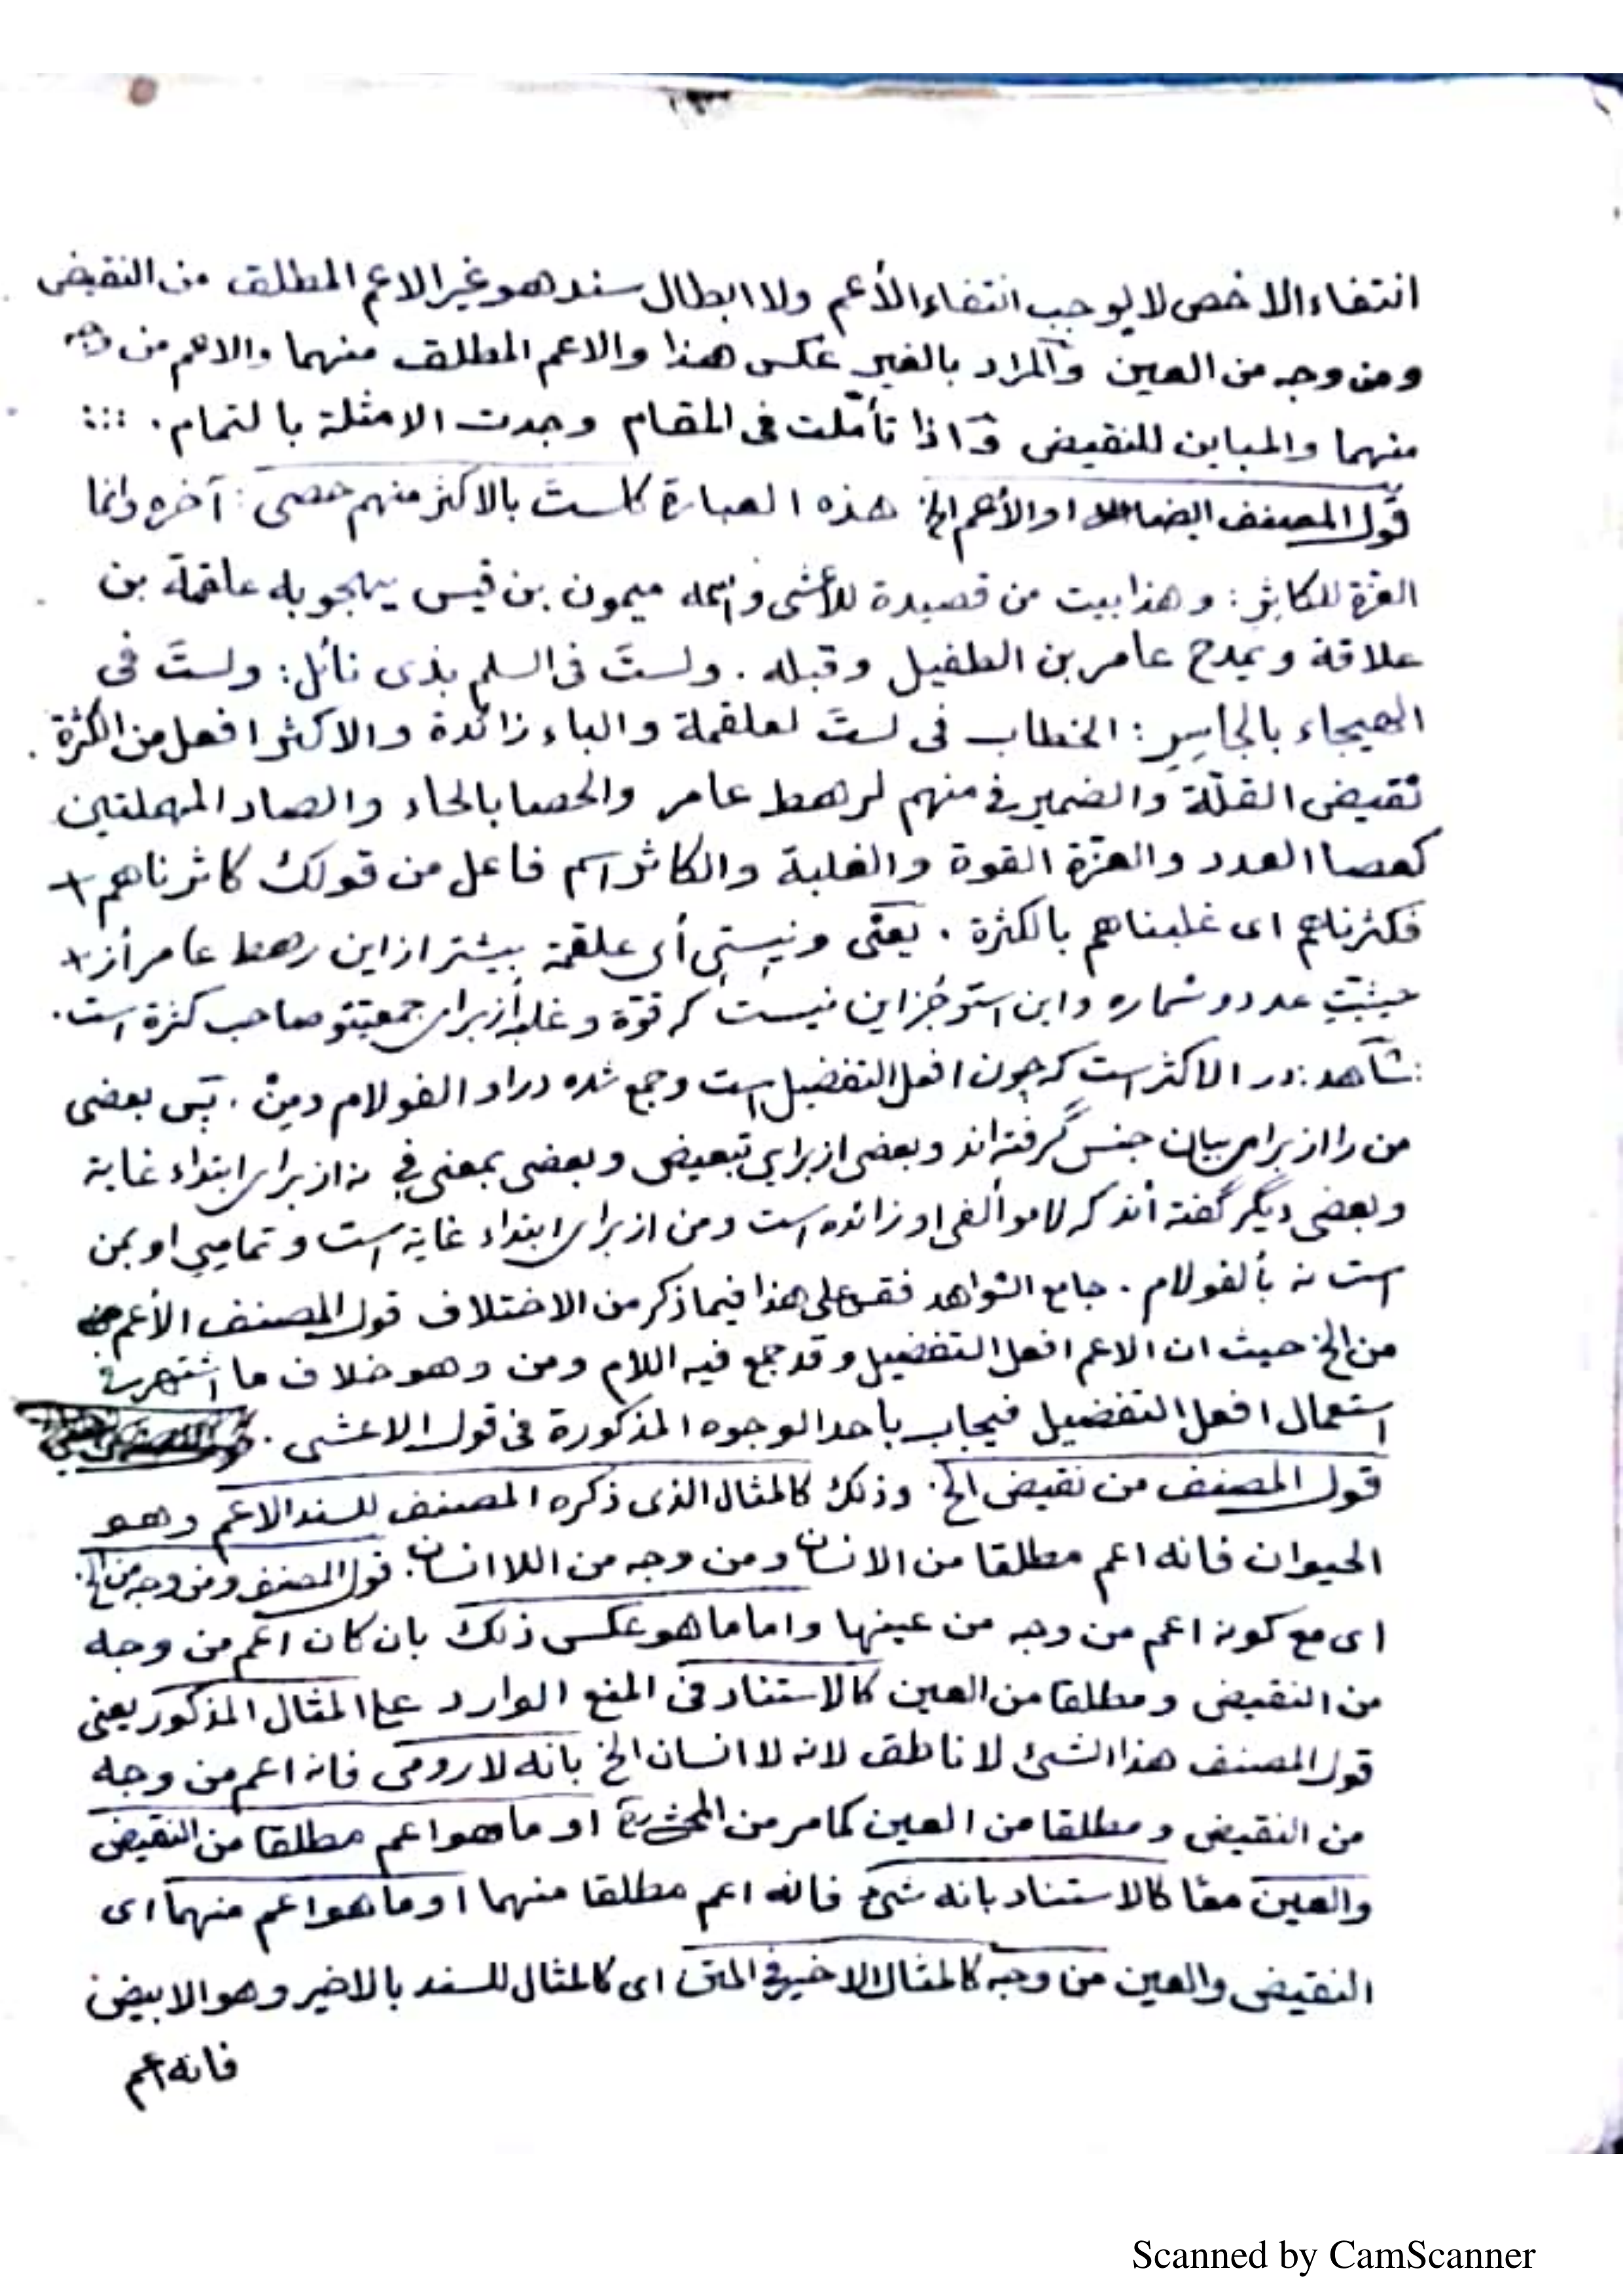 انتفاء الاخص لا يوجب انتفاء الأعم ولا ابطال سند هو غير الاعم المطلق من النقيض
ومن وجه من العين والمراد بالغير عكس هذا والاعم المطلق منهما والاعم من وجه
منهما والمباين للنقيض واذا تأملت فى المقام وجدت الامثلة بالتمام .
قول المصنف ايضا او الأعم الخ هذه العبارة كلستَ بالاكثر منهم حصى : آخره وانما
العزة للكاثِرِ : وهذا بيت من قصيدة للأعشى واسمه ميمون بن قيس يهجو به علقمة بن
علاقة ويمدح عامر بن الطفيل وقبله . ولستَ فى السلم بذى نائل : ولستَ فى
الهيجاء بالجاسِرِ : الخطاب فى لستَ لعلقمة والباء زائدة والاكثر افعل من الكثرة .
نقيض القلّة والضمير فى منهم لرهط عامر والحصا بالحاء والصاد المهملتين
كعصا العدد والعزّة القوة والغلبة والكاثر اسم فاعل من قولك كاثرناهم +
فكثرناهم اى غلبناهم بالكثرة . يعنى ونيستى أى علقمة بيشتر از اين رهط عامر أز +
حيثيتِ عدد و شماره واين استو جُز اين نيست كه قوّة و غلبه أز براى جمعيتو صاحب كثرة است .
: شاهد : در الاكثر است كه چون افعل التفضيل است وجمع شده در او الفو لام ومِنْ . پَس بعضى
من را از براى بيان جنس گرفته اند وبعضى از براي تبعيض وبعضى بمعنى في نه از براى ابتداء غاية
وبعضى ديگر گفته أند كه لامو ألفى او زائده است ومن از براى ابتداء غاية است وتماميي او بمن
است نه بألفو لام . جامع الشواهد فقس على هذا فيما ذكر من الاختلاف قول المصنف الأعم
من الخ حيث ان الاعم افعل التفضيل وقد جمع فيه اللام ومن وهو خلاف ما اشتهر فى
استعمال افعل التفضيل فيجاب بأحد الوجوه المذكورة فى قول الاعشى .
قول المصنف من نقيض الخ . وذلك كالمثال الذى ذكره المصنف للسند الاعم وهو
الحيوان فانه اعم مطلقا من الانسان ومن وجه من اللاانسان . قول المصنف ومن وجه من الخ .
اى مع كونه اعم من وجه من عينها واما ما هو عكس ذلك بان كان اعم من وجه
من النقيض ومطلقا من العين كالاستناد فى المنع الوارد على المثال المذكور يعنى
قول المصنف هذا الشئ لا ناطق لانه لا انسان الخ بانه لا رومى فانه اعم من وجه
من النقيض ومطلقا من العين كما مر من او ما هو اعم مطلقا من النقيض
والعين معًا كالاستناد بانه شئ فانه اعم مطلقا منهما او ما هو اعم منهما اى
النقيض والعين من وجه كالمثال الاخير فى المتن اى كالمثال للسند بالاخير وهو الابيض
فانه اعم
Scanned by CamScanner